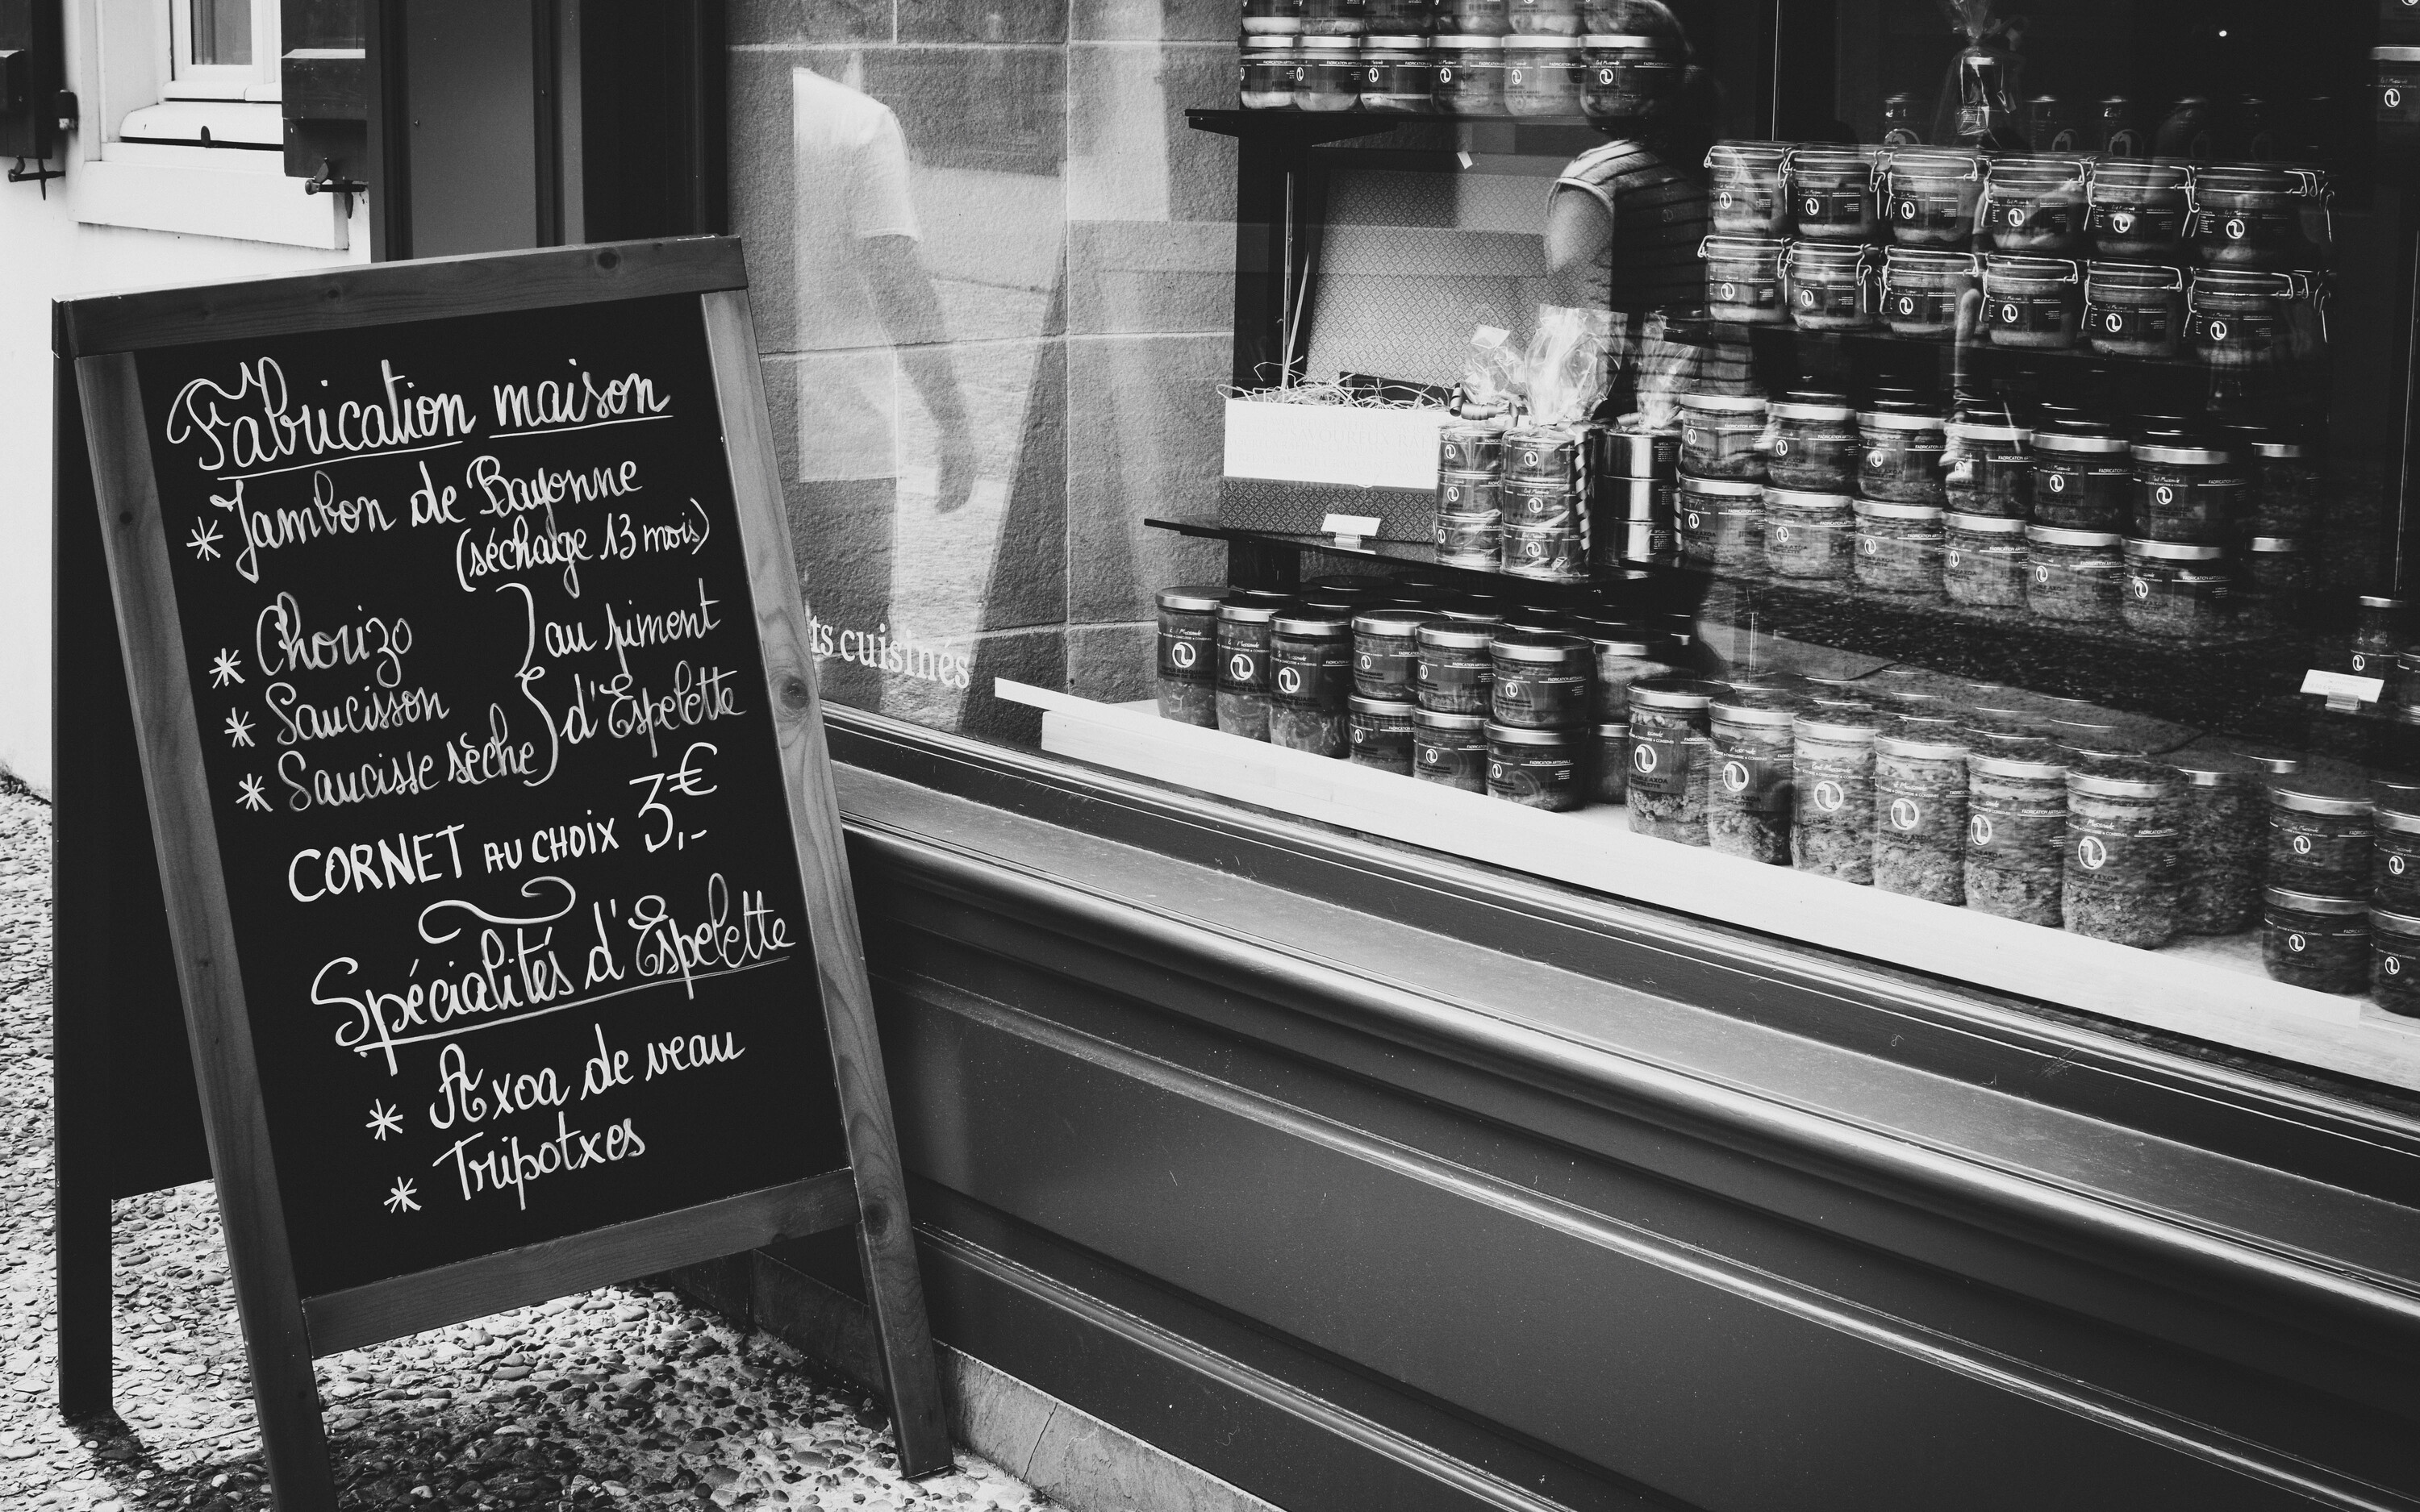 Fabrication maison
* Jambon de Bayonne
(séchage 13 mois)
* Chorizo
* Saucisson
* Saucisse sèche
au piment
d'Espelette
CORNET AU CHOIX 3,-€
Spécialités d'Espelette
* Axoa de veau
* Tripotxes
ts cuisinés